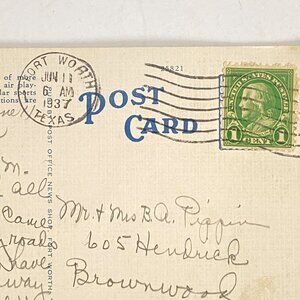 of more
air play-
lar sports
tions are
FORT WORTH
JUN 11
6 AM
1937
TEXAS
25821
POST
CARD
UNITED STATES POSTAGE
1 1
CENT
POST OFFICE NEWS SHOP, FORT WORTH
M.
all
Came
roads
have
way
Mr. & Mrs B.A. Pippin
605 Hendrick
Brownwood